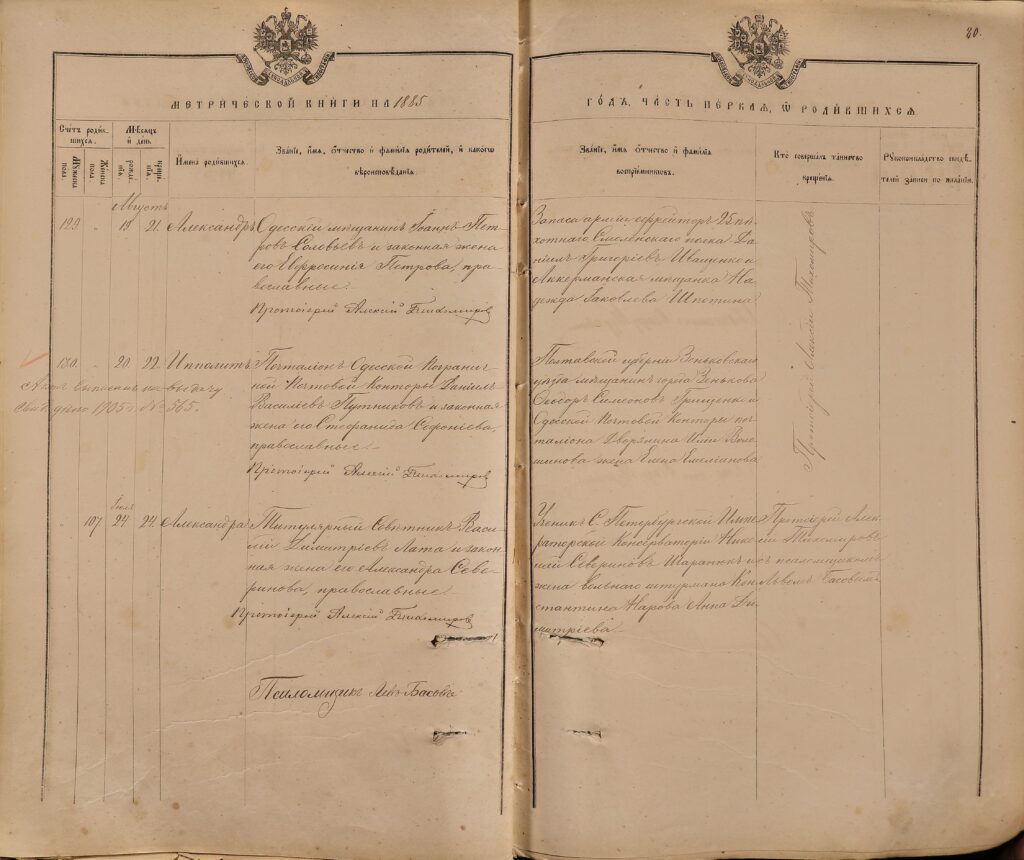 80.
МЕТРИЧЕСКОЙ КНИГИ НА 1885
ГОДЪ, ЧАСТЬ ПЕРВАЯ, Ѡ РОДИВШИХСЯ.
Счетъ родив-
шихся.
Мѣсяцъ
и день
Мужеска
пола
Женска
пола
рожде-
нія
креще-
нія
Имена родившихся.
Званіе, имя, отчество и фамилія родителей, и какого
вѣроисповѣданія.
Званіе, имя отчество и фамилія
воспріемниковъ.
Кто совершалъ таинство
крещенія.
Рукоприкладство свидѣ-
телей записи по желанію.
Августъ
129. 19 21. Александръ
Одесскій мѣщанинъ Іоаннъ Пет-
ровъ Соловьевъ и законная жена
его Евфросинія Петрова, пра-
вославные.
Протоіерей Алексій Тихомировъ
Запаса арміи ефрейторъ 25 пѣ-
хотнаго Смоленскаго полка Да-
ніилъ Григоріевъ Иващенко и
Аккерманская мѣщанка На-
дежда Іаковлева Шпетина
130. 20 22. Ипполитъ
Почталіонъ Одесской Погранич-
ной Почтовой Конторы Даніилъ
Василіевъ Путниковъ и законная
жена его Стефанида Софоніева,
православные.
Протоіерей Алексій Тихомировъ
выдачу
1905 г. № 565.
Полтавской губерніи Зеньковскаго
уѣзда мѣщанинъ города Зенькова
Ѳеодоръ Симеоновъ Грищенко и
Одесской Почтовой Конторы поч-
таліона Дворянина Иліи Воло-
шинова жена Елена Емеліанова
Протоіерей Алексій Тихомировъ
Іюля
107 24 24. Александра
Титулярный Совѣтникъ Васи-
лій Димитріевъ Лата и закон-
ная жена его Александра Севе-
ринова, православные.
Протоіерей Алексій Тихомировъ
Псаломщикъ Левъ Басовъ
Ученикъ С. Петербургской Импе-
раторской Консерваторіи Нико-
лай Севериновъ Шаранюкъ и
жена вольнаго штурмана Кон-
стантина Жарова Анна Ди-
митріева.
Протоіерей Алек-
сій Тихомировъ
съ псаломщикомъ
Львомъ